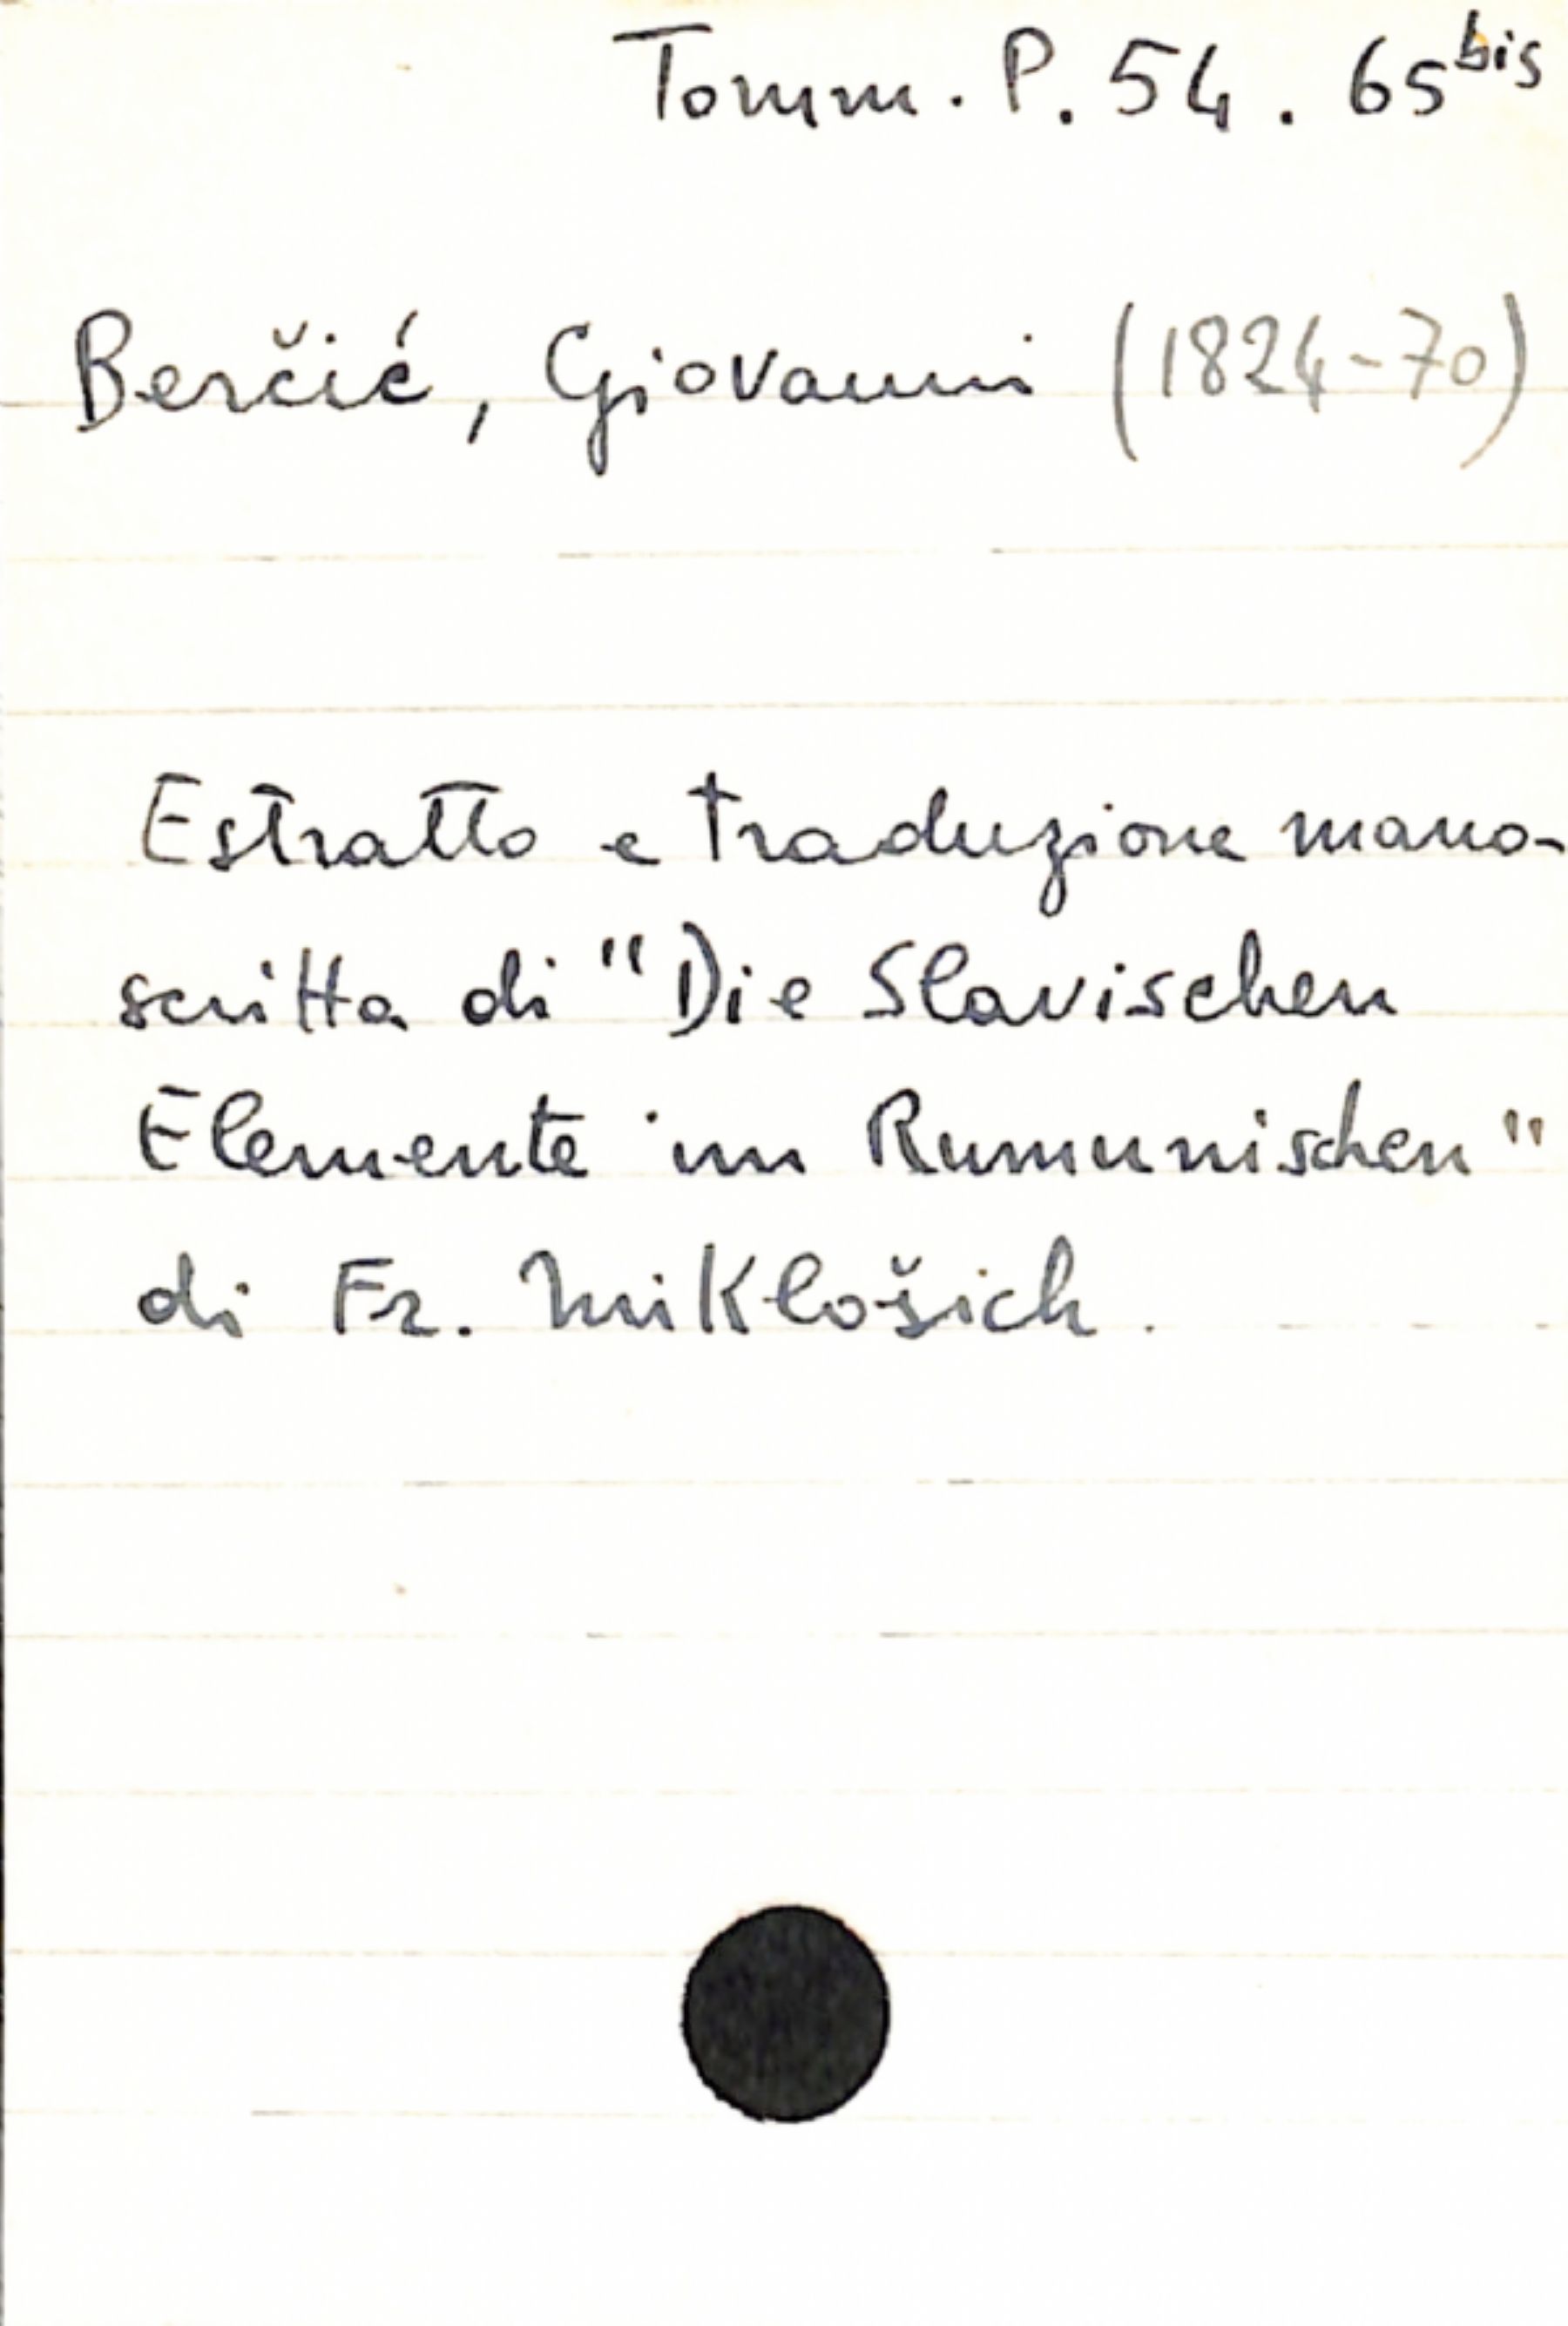 Tomm. P. 54. 65bis
Berčić, Giovanni (1824-70)
Estratto e traduzione mano-
scritta di "Die Slavischen
Elemente im Rumunischen"
di Fr. Miklošich.